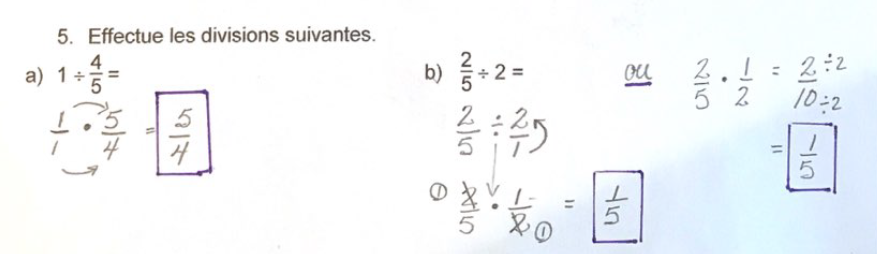 5. Effectue les divisions suivantes.
a) 1 ÷ 4/5 =
1/1 · 5/4 = 5/4
b) 2/5 ÷ 2 =
2/5 ÷ 2/1
① 2/5 · 1/2 ① = 1/5
ou
2/5 · 1/2 = 2÷2/10÷2
= 1/5